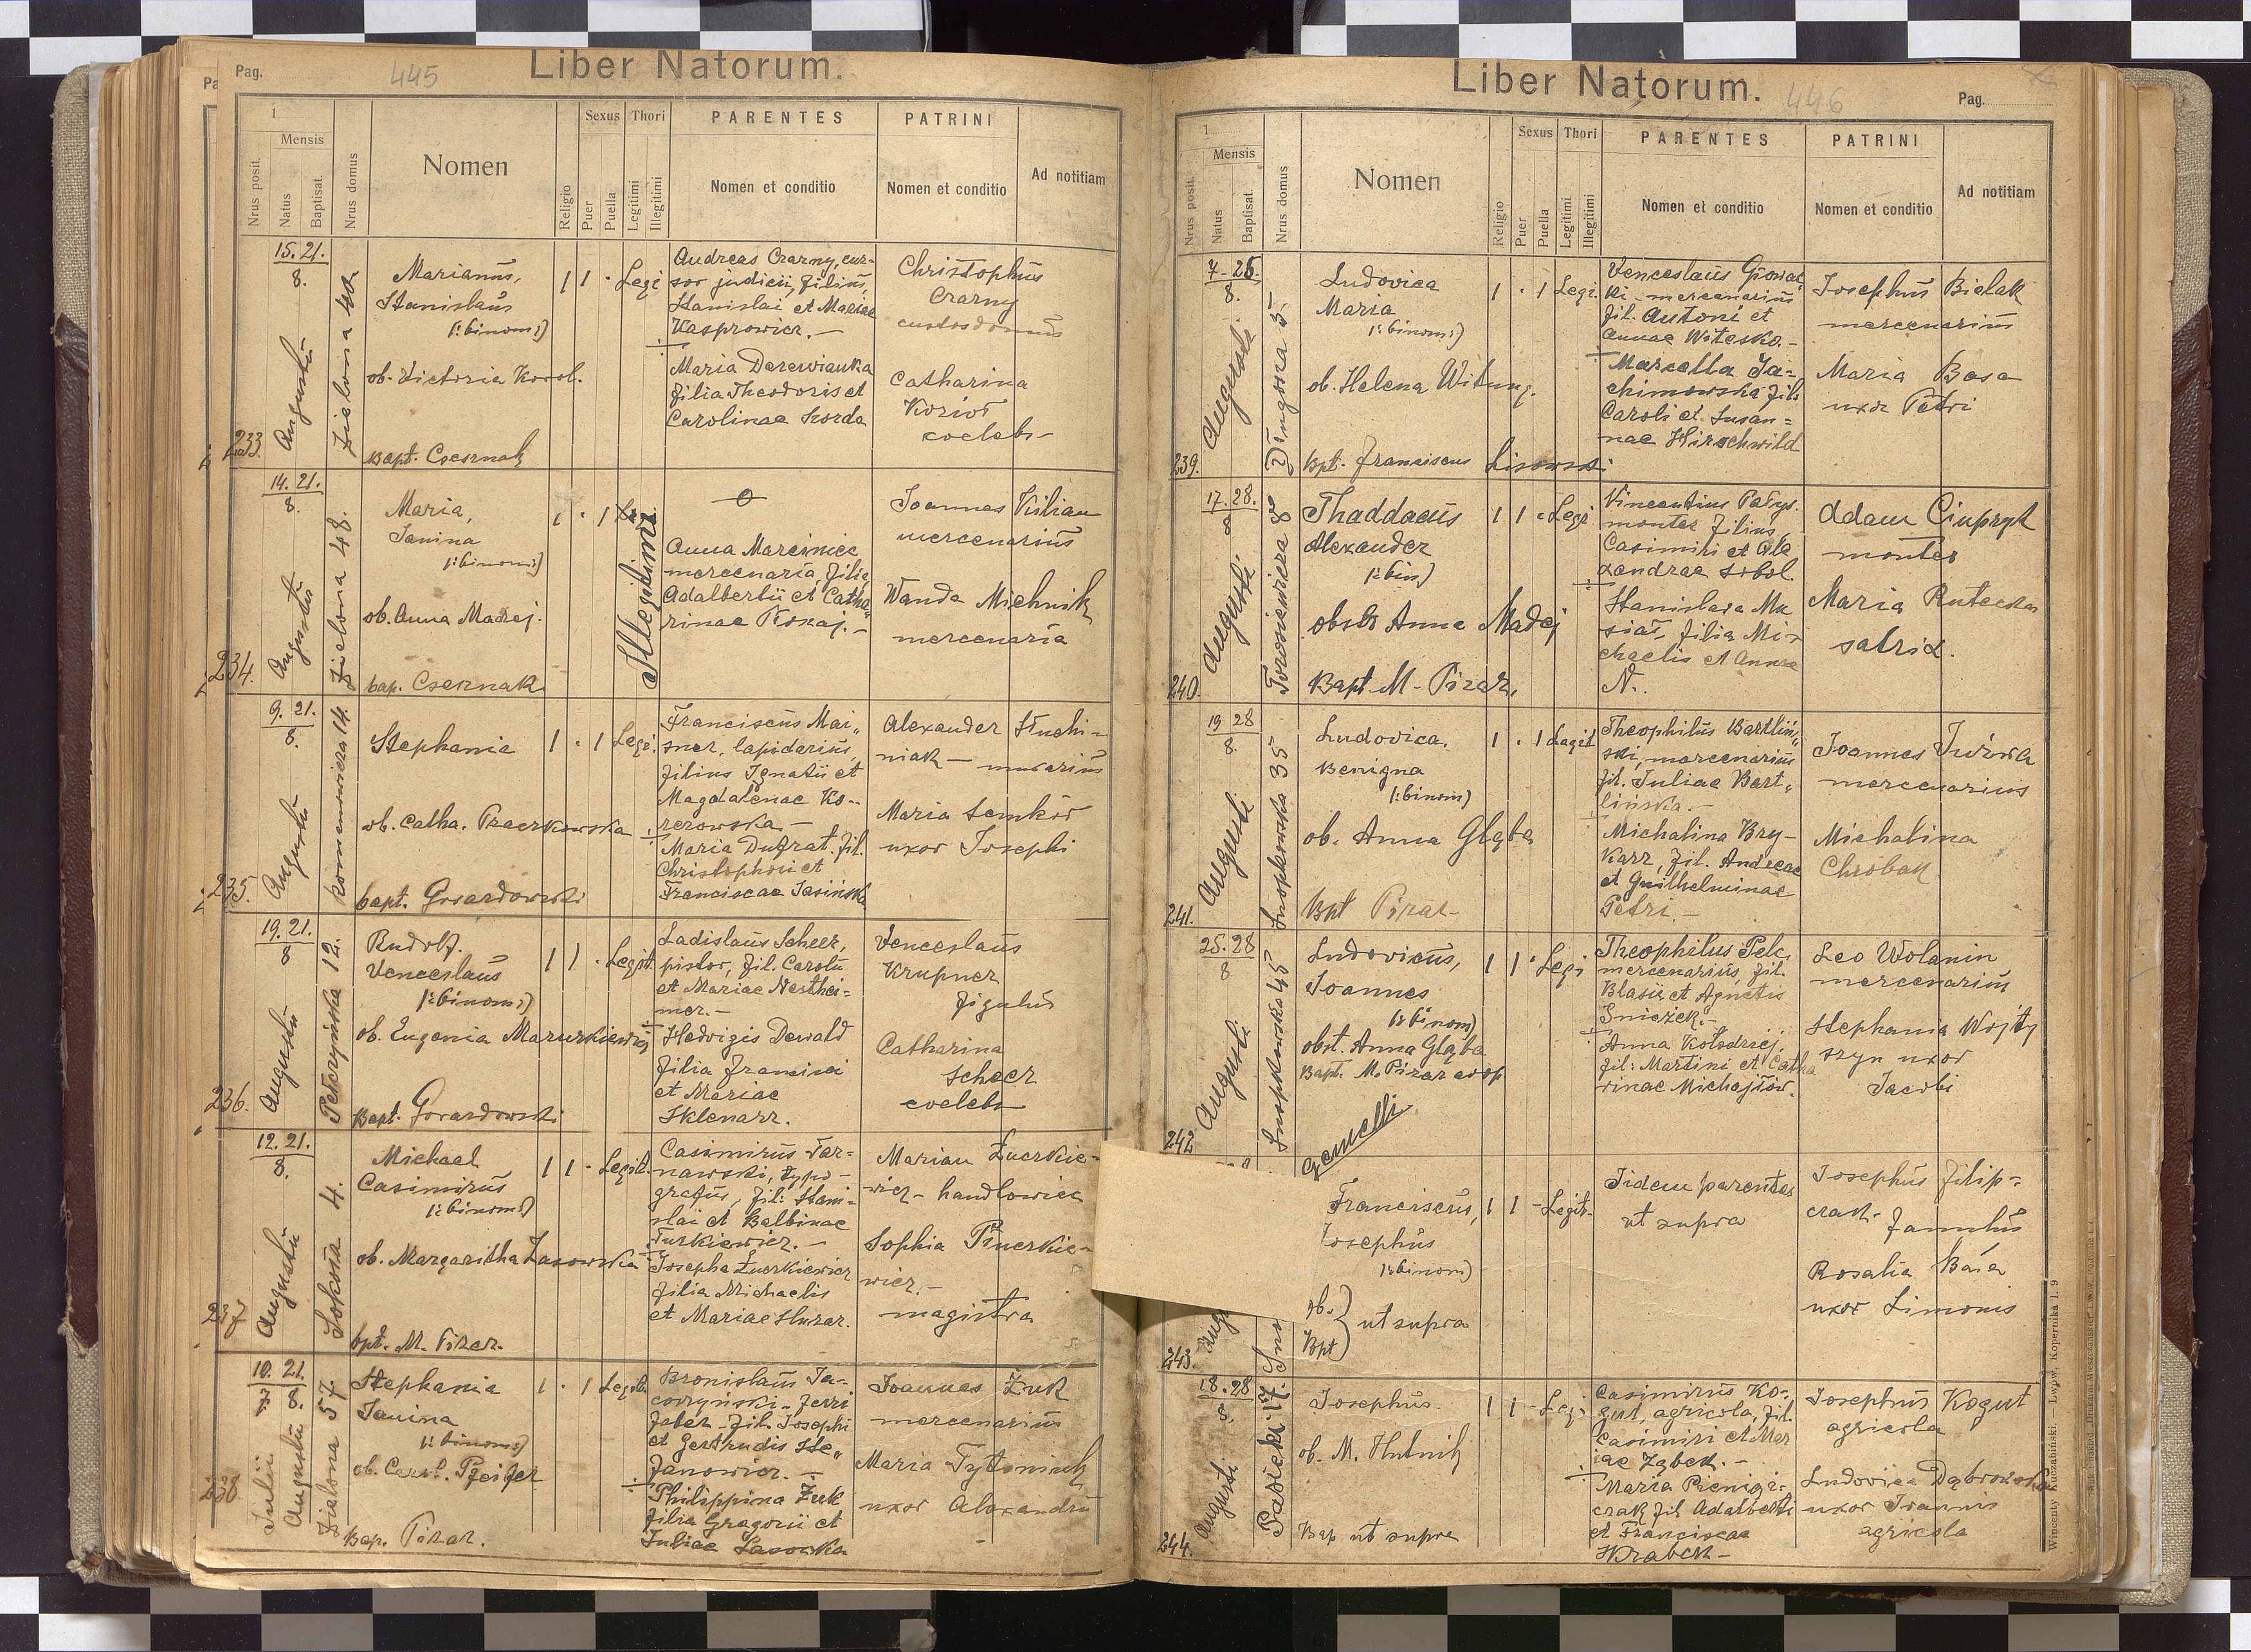 Pag.
445
Liber Natorum.
1
Mensis
Nrus posit.
Natus
Baptisat.
Nrus domus
Nomen
Religio
Sexus
Puer
Puella
Thori
Legitimi
Illegitimi
PARENTES
Nomen et conditio
PATRINI
Nomen et conditio
Ad notitiam
233.
15. 21.
8.
Augusti
Zielona 40.
Marianus,
Stanislaus
(:binom:)
ob. Victoria Korol.
Bapt. Czesznak
1 1 · Legi
Andreas Czarny, cur-
sor judicii, filius,
Stanislai et Mariae
Kasprowicz. —
Maria Derewianka
filia Theodoris et
Carolinae Korda
Christophus
Czarny
custos domus
Catharina
Kozioł
coelebs
234.
14. 21.
8.
Augusti
Zielona 48.
Maria,
Janina
(:binom:)
ob. Anna Madzej.
bap. Czesznak
1 · 1
Illegitima
Anna Marciniec
mercenaria, filia
Adalbertii et Catha-
rinae Kokaj. —
Joannes Kilian
mercenarius
Wanda Michnik
mercenaria
235.
9. 21.
8.
Augusti
14.
Stephania
ob. Catha. Praczkowska
bapt. Gorardowski
1 · 1 Legi.
Franciscus Mai-
sner, lapidarius,
filius Ignatii et
Magdalenae Ko-
zerowska —
Maria Dufrat. fil.
Christophori et
Franciscae Jasińska
Alexander Stuchi-
niak — murarius
Maria Semków
uxor Josephi
236.
19. 21.
8
Augusti
Pełczyńska 12.
Rudolf.
Venceslaus
(:binom:)
ob. Eugenia Mazurkiewicz
Bapt. Gorardowski
1 1 · Legit.
Ladislaus Scheer,
pistor, fil. Caroli
et Mariae Nesthei-
mer. —
Hedvigis Dewald
filia Francisci
et Mariae
Sklenarz.
Venceslaus
Krupner
figulus
Catharina
Scheer
coelebs
237
12. 21.
8.
Augusti
Sokoła 4.
Michael
Casimirus
(:binom:)
ob. Margaritha Lasowska
bpt. M. Pirar.
1 1 · Legit.
Casimirus Tar-
nawski, typo-
grafus, fil: Stani-
slai et Balbinae
Turkiewicz. —
Josepha Żuerkiewicz
filia Michaelis
et Mariae Huzar.
Marian Żuerkie-
wicz - handlowiec
Sophia
wicz. —
magistra
238
10. 21.
7 8
Julii
Augusti
Zielona 57.
Stephania
Janina
(:binom:)
ob. Carol. Pfeifer
Bap. Pirar.
1 · 1 Legit.
Bronislaus Ja-
coryński - ferri
faber - fil. Josephi
et Gertrudis Ste-
fanowicz. —
Philippina Żuk
filia Gregorii et
Juliae Sasowska
Joannes Żuk
mercenarius
Maria Tytoniuk
uxor Alexandri
Liber Natorum.
446
Pag.
1
Mensis
Nrus posit.
Natus
Baptisat.
Nrus domus
Nomen
Religio
Sexus
Puer
Puella
Thori
Legitimi
Illegitimi
PARENTES
Nomen et conditio
PATRINI
Nomen et conditio
Ad notitiam
239.
7-26.
8.
Augusti
Długosza 5.
Ludovica
Maria
(:binom:)
ob. Helena Witung.
Bpt. Franciscus Lisowski
1 · 1 Legi.
Venceslaus Głowac
ki - mercenarius
fil. Antoni et
Annae Witesko. —
Marcella Ja-
chimowska fil.
Caroli et Susan-
nae Hirschwild
Josephus Bielak
mercenarius
Maria Basa
uxor Petri
240.
17. 28.
8
Augusti.
Torosiewicza 8
Thaddaeus
Alexander
(:bin)
obst. Anna Madej
Bapt. M. Pirar.
1 1 · Legi
Vincentius Patys.
monter filius
Casimiri et Ale
xandrae Sobol.
Stanislava Mu
siał, filia Mi-
chaelis et Annae
N.
Adam Ciupryk
monter
Maria Rutecka
satrix.
241.
19 28
8.
Augusti
Snopkowska 35
Ludovica,
Benigna
(:binom)
ob. Anna Głąba
Bpt Pirar
1 · 1 Legit
Theophilus Bartliń-
ski, mercenarius
fil. Juliae Bart-
lińska. —
Michalina Bry-
karz, fil. Andreae
et Guilhelminae
Petri. —
Joannes Juźwa
mercenarius
Michalina
Chrobak
242
25. 28
8
Augusti
Snopkowska 45
Ludovicus,
Joannes
(:binom)
obst. Anna Głąba
Bapt. M. Pirar coop
Gemelli
1 1 · Legi
Theophilus Pelc,
mercenarius, fil.
Blasii et Agnetis
Śnieżek. —
Anna Kołodziej,
fil: Martini et Catha
rinae Michajłów.
Leo Wolanin
mercenarius
Stephania Wojty
szyn uxor
Jacobi
243.
Aug
Sno
Franciscus,
Josephus
(:binom)
ob. Bpt } ut supra
1 1 - Legit.
Iidem parentes
ut supra
Josephus Filip-
czak. famulus
Rosalia Basa
uxor Simonis
244.
18. 28
8.
Augusti
Pasieki 17.
Josephus.
ob. M. Hutnik
Bap ut supra
1 1 - Legi
Casimirus Ko-
gut, agricola, fil.
Casimiri et Mar
iae Ząbek. —
Maria Pieniąż-
czak fil Adalberti
et Franciscae
Hrabek —
Josephus Kogut
agricola
Ludovica Dąbrowska
uxor Joannis
agricola
Wincenty Kuczabiński. — Lwów, Kopernika l. 9